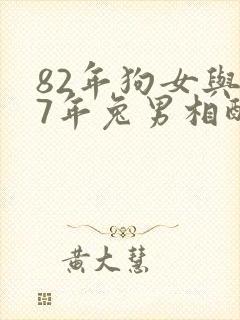 82年狗女與
7年兔男相配
黄大慧